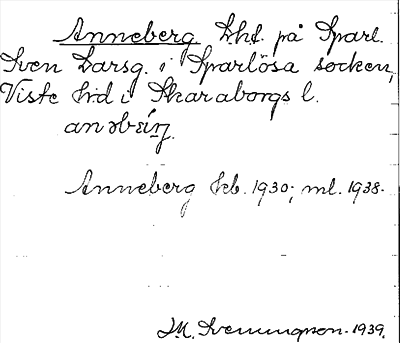 Anneberg Lht. på Sparl.
Sven Larsg. i Sparlösa socken,
Viste hrd i Skaraborgs l.
Anneberg kb. 1930; ml. 1938.
M. Svenungson. 1939.